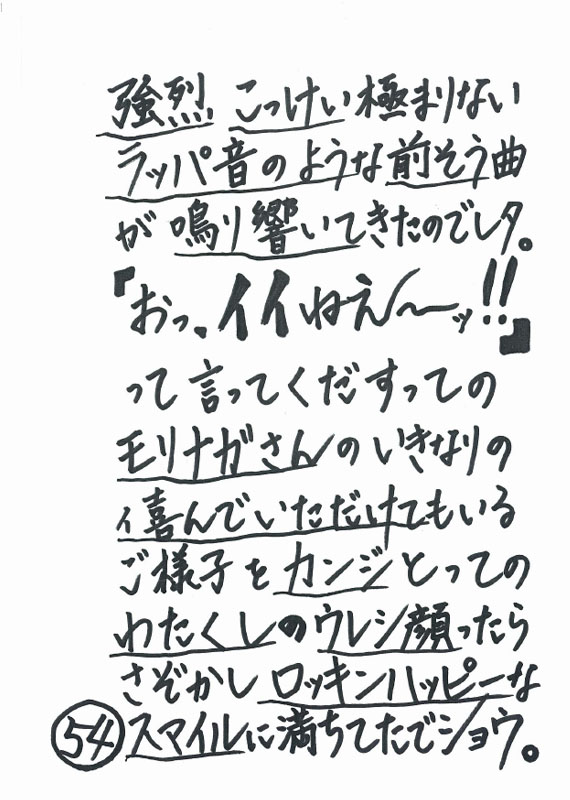 強烈 こっけい極まりない
ラッパ音のような前そう曲
が鳴り響いてきたのでレタ。
『おっ、イイねえ〜ッ!!』
って言ってくだすっての
モリナガさんのいきなりの
ィ喜んでいただけてもいる
ご様子をカンジとっての
わたくしのウレシ顔ったら
さぞかしロッキンハッピーな
54 スマイルに満ちてたでショウ。